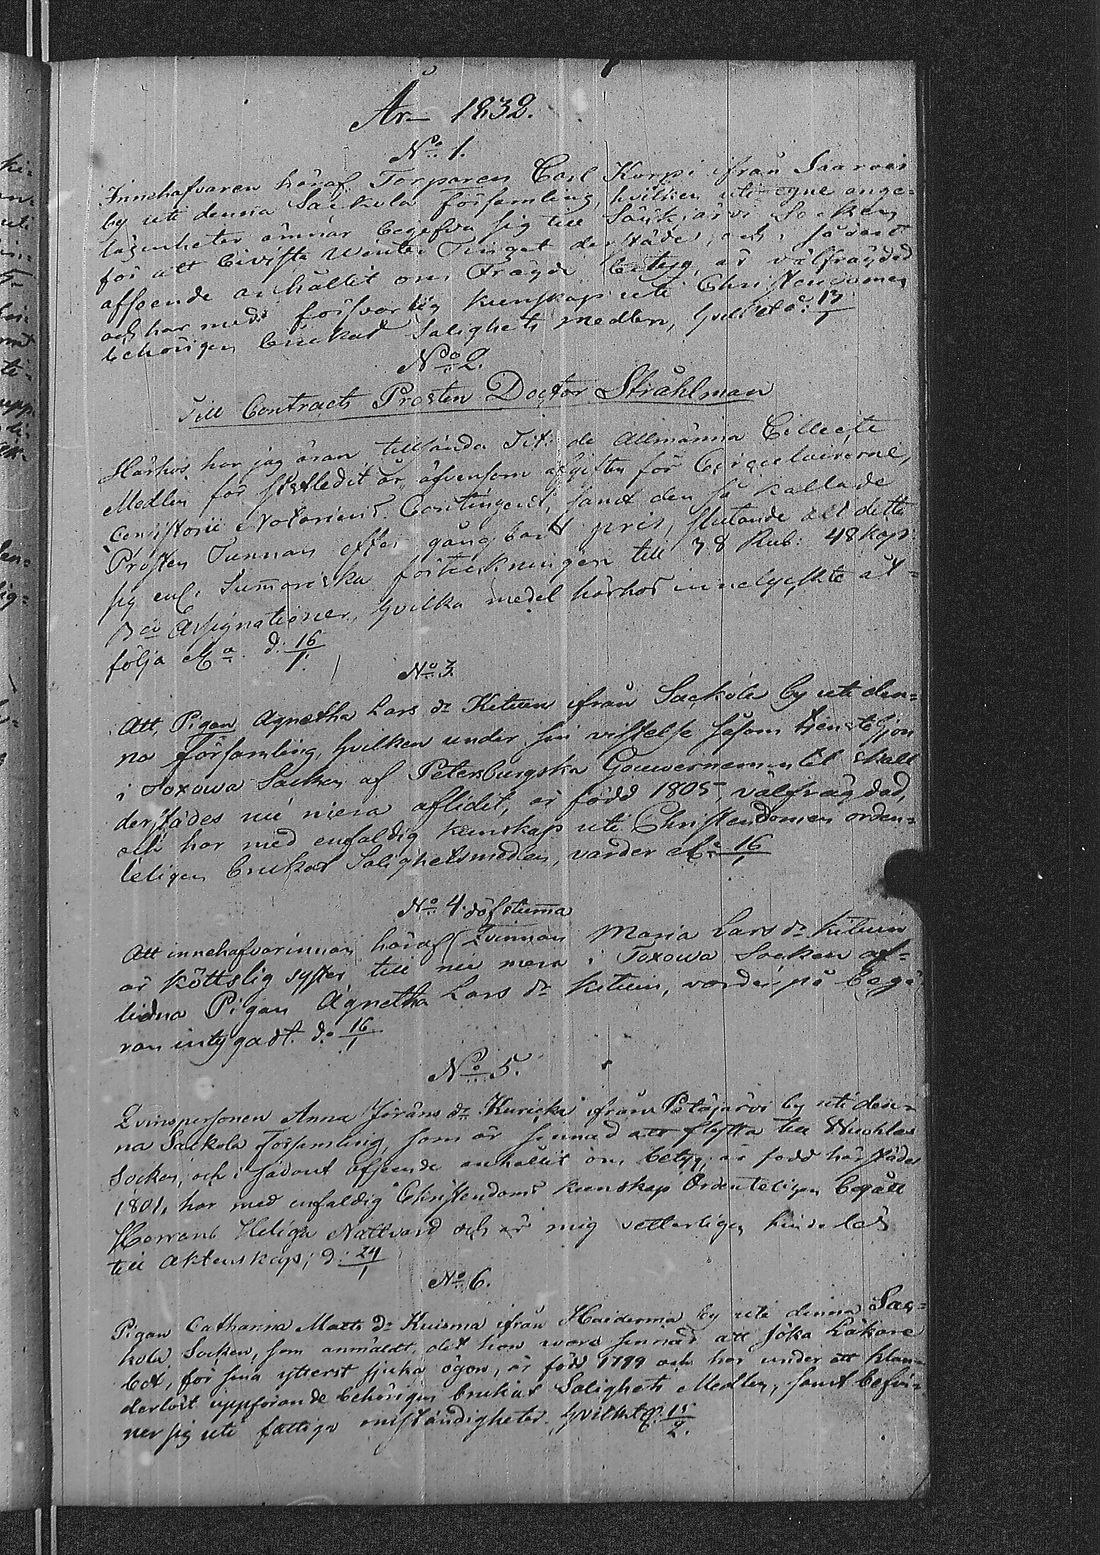 År 1832.
No 1.
Innehafvaren häraf Torparen Carl Korpi från Saaroi
by uti denna Sackola församling, hvilken uti egne ange-
lägenheter ämnar begifva sig till Säkkjärvi Socken
för att bivista Winter Tinget derstädes, och i sådant
afseende anhållit om Prägde betyg, är välfrägdad
och har med försvarlig kunskap uti Christendomen
behörigen brukat Salighets medlen, hvilket d: 13/1
No 2.
Till Contracts Prosten Doctor Stråhlman
Härhos har jag äran tillsända Tit: de Allmänna Collecte
Medlen för sistledit år, äfvensom afgiften för Circulairerne,
Consistorii Notariens Contingent, samt den så kallade
Prosten Tunnan efter gångbart pris, slutande allt detta
sig enl. Summariska förteckningen till 38 Rub: 48 kop:
Bco Assignationer, hvilka medel härhos innelyckte åt-
följa d. 16/1
No 3.
Att Pigan Agnetha Lars dr Kituin ifrån Sackola by uti den-
na församling, hvilken under sin vistelse såsom tienstehjon
i Toxowa Socken af Petersburgska Gouvernementet skall
derstädes nu mera aflidit, är född 1805, välfrägdad,
och har med enfaldig kunskap uti Christendomen orden-
teligen brukat Salighetsmedlen, varder 16/1
No 4. döfstumma
Att innehafvarinnan häraf Qvinnan Maria Lars dr Kituin
är köttslig syster till nu mera i Toxowa Socken af-
lidna Pigan Agnetha Lars dr Kituin, varder på begä
ran intygadt. d. 16/1
No 5.
Qvinspersonen Anna Jöräns dr Kuricka ifrån Petäjärvi by uti den-
na Sackola Församling som är sinnad att flytta till
Socken, och i sådant afseende anhållit om betyg, är född härstädes
1801, har med enfaldig Christendoms kunskap Ordenteligen begått
Herrans Heliga Nattvard och är mig vetterligen hinderlös
till äktenskap; d: 24/1
No 6.
Pigan Catharina Matts dr Kuisma ifrån Haiderma by uti denna Sac-
kola Socken, som anmäldt, det hon wore sinnad att söka Läkare
bot, för sina ytterst sjuka ögon, är född 1799 och har under ett klan-
derlöst uppförande behörigen brukat Salighets Medlen, samt befin-
ner sig uti fattiga omständigheter. hvilket d. 15/2.